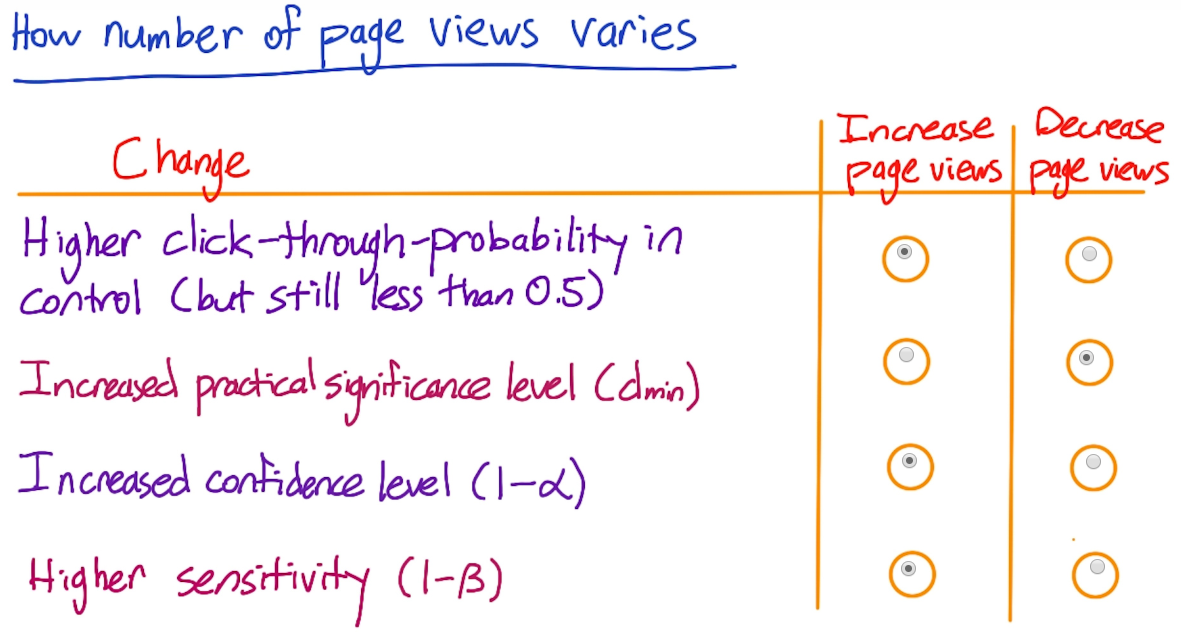 How number of page views varies
Change
Increase
page views
Decrease
page views
Higher click-through-probability in
control (but still less than 0.5)
Increased practical significance level (dmin)
Increased confidence level (1-α)
Higher sensitivity (1-β)